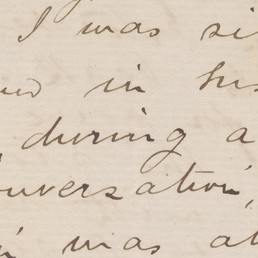 I was si
in
during a
onversation,
was at